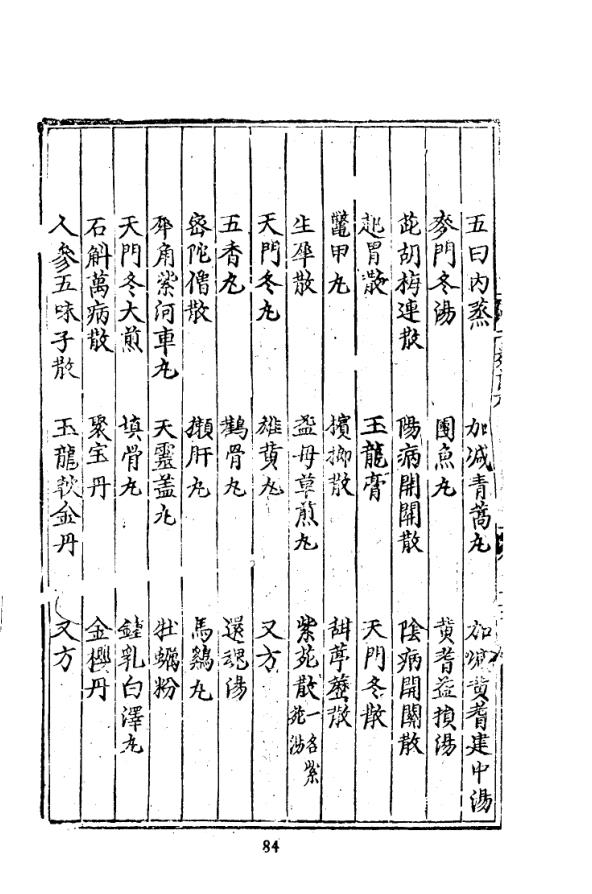 五曰內蒸 加減青蒿丸 加減黃耆建中湯
麥門冬湯 團魚丸 黃耆益損湯
茈胡梅連散 陽病開關散 陰病開關散
起胃散 玉龍膏 天門冬散
鼈甲丸 檳榔散 甜葶藶散
生犀散 益母草煎丸 紫菀散一名紫菀湯
天門冬丸 雄黃丸 又方
五香丸 鸛骨丸 還魂湯
密陀僧散 獺肝丸 馬鷄丸
犀角紫河車丸 天靈蓋丸 牡蠣粉
天門冬大煎 填骨丸 鍾乳白澤丸
石斛萬病散 聚宝丹 金櫻丹
人參五味子散 玉龍軟金丹 又方
84